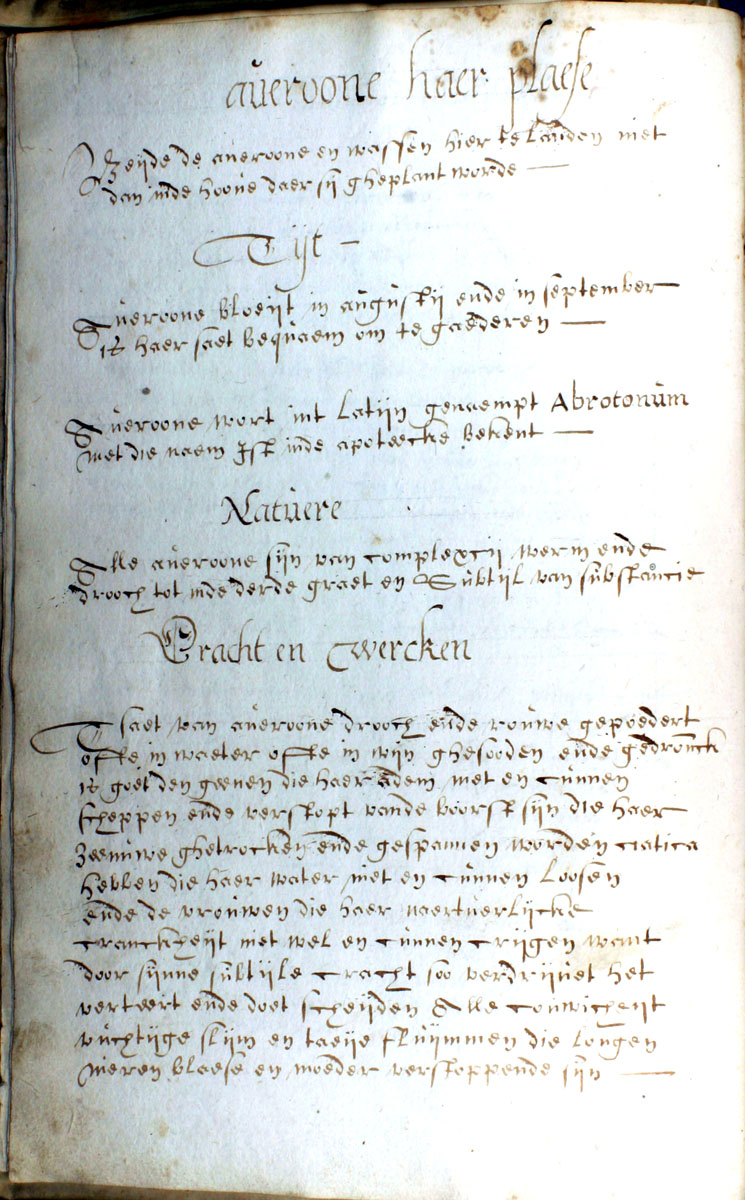 averoone haer plaese
Beijde de averoone en wassen hier te landen niet
dan inde hoove daer sij gheplant worde —
Tijt —
Averoone bloeijt in augustij ende in september
is haer saet bequaem om te gaederen —
Averoone wort int Latijn genaempt Abrotonum
met die naem Ist inde apoteecke bekent —
Natuere
Alle averoone sijn van complexcij werm ende
drooch tot inde derde graet en Subtijl van substancie
Cracht en Twercken
Tsaet van averoone drooch ende rouwe gepoedert
ofte in waeter ofte in wijn ghesooden ende gedronck
is goet den geenen die haer adem niet en cunnen
scheppen ende verstopt vande boorst sijn die haer
zeenuwe ghetrocken ende gespannen worden ciatica
hebben die haer water niet en cunnen Loosen
ende de vrouwen die haer naertuerlijcke
cranckheijt niet wel en cunnen crijgen want
door sijnne subtijle cracht soo verdrijvet het
verteert ende doet scheijden Alle couwicheijt
vuchtijge slijm en taeije fluijmmen die longen
nieren blaese en moeder verstoppende sijn —